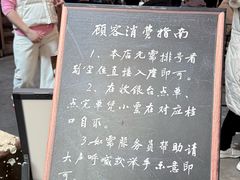 顾客消费指南
1、本店无需排号看
到空位直接入座即可。
2、在收银台点单、
点完单凭小票在对应档
口自取。
3、如需服务员帮助请
大声呼喊或招手示意即
可。